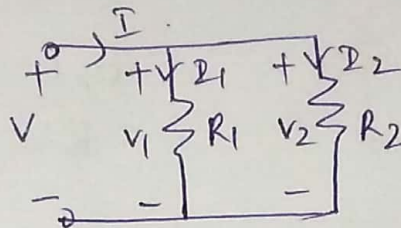 I
+ + I1 + I2
V V1 R1 V2 R2
- - -